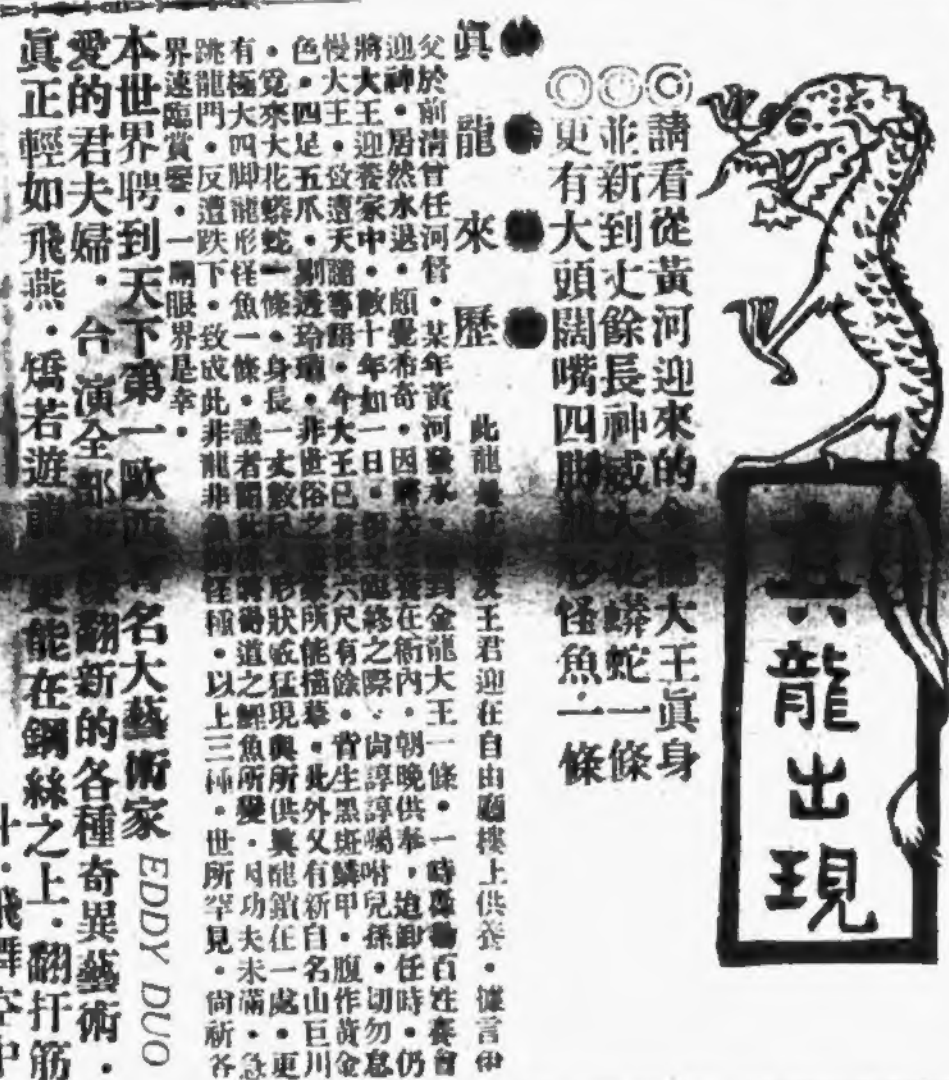 真龍出現
◎請看從黃河迎來的金龍大王眞身
◎並新到丈餘長神威大花蟒蛇一條
◎更有大頭闊嘴四脚龍形怪魚一條
眞龍來歷
此龍王君迎在自由廳樓上供養・據言伊
父於前清曾任河督・某年黃河發水・到金龍大王一條・一時百姓賽會
迎神・居然水退・頗覺希奇・因將大王養在衙內・朝晚供奉・迨卸任時・仍
將大王迎養家中・數十年如一日・臨終之際・尙諄諄囑咐兒孫・切勿怠
慢大王・致遭天譴等語・今大王已身長六尺有餘・背生黑斑鱗甲・腹作黃金
色・四足五爪・剔透玲瓏・非世俗之所能描摹・此外又有新自名山巨川
・覓來大花蟒蛇一條・身長一丈數尺・形狀威猛現與所供眞龍館在一處・更
有極大四脚龍形怪魚一條・議者道之鯉魚所變・因功夫未滿・急
跳龍門・反遭跌下・致成此非龍非魚的怪種・以上三種・世所罕見・尙祈各
界速臨賞鑒・一開眼界是幸・
本世界聘到天下第一歐西著名大藝術家 EDDY DUO
愛的君夫婦・合演全部翻新的各種奇異藝術・
眞正輕如飛燕・矯若遊龍更能在鋼絲之上・翻打筋
斗・飛舞空中